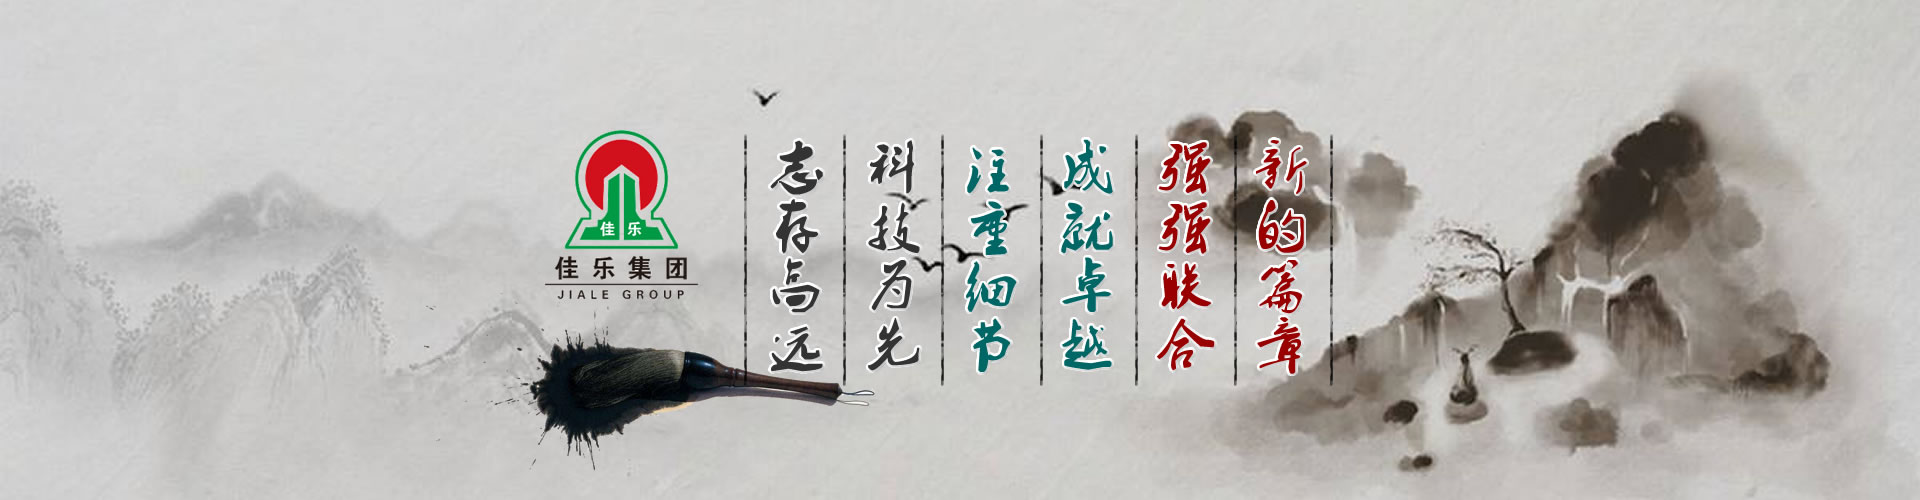 佳乐
佳乐集团
JIALE GROUP
志存高远
科技为先
注重细节
成就卓越
强强联合
新的篇章